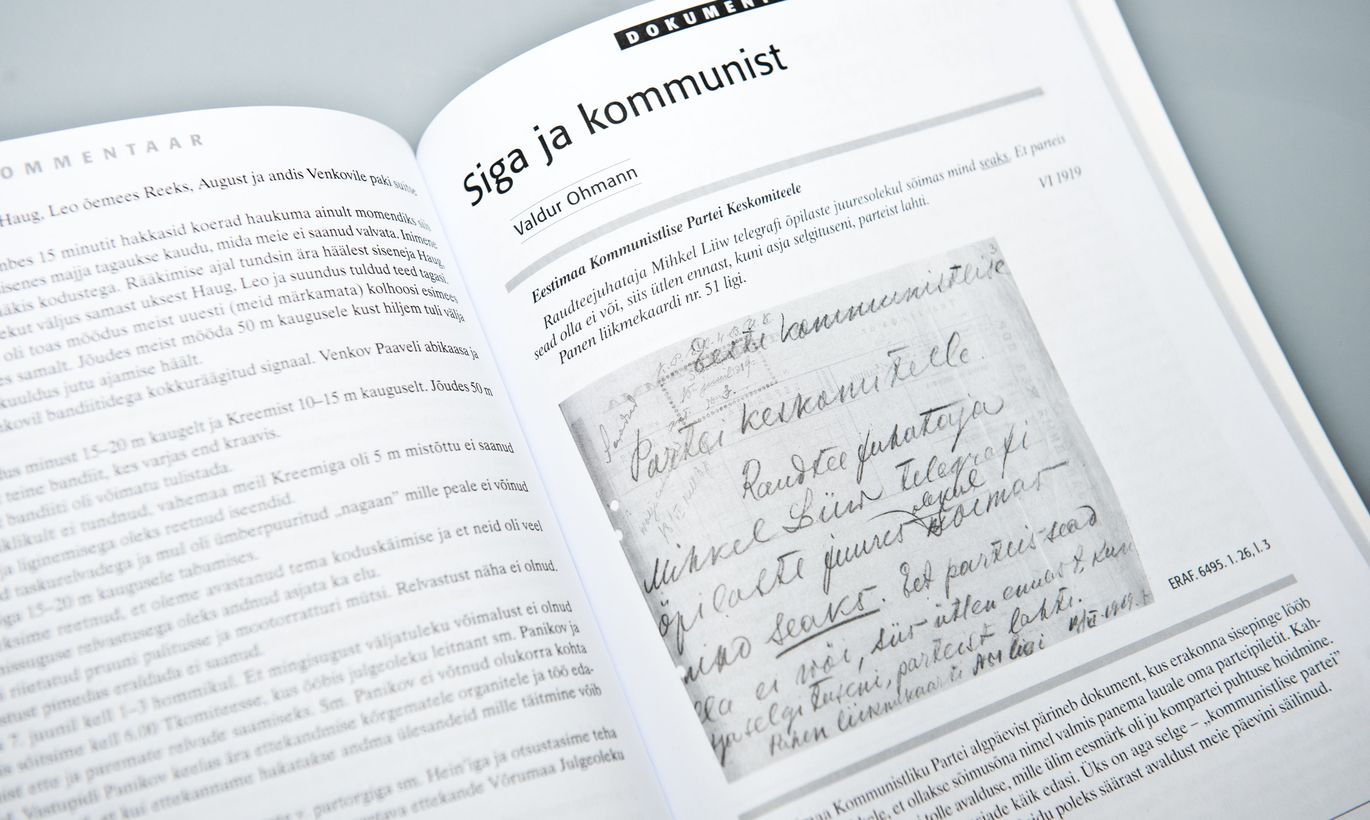 OMMENTAAR
Haug, Leo õemees Reeks, August ja andis Venkovile paki suitse
mbes 15 minutit hakkasid koerad haukuma ainult momendiks siis
isenes majja tagaukse kaudu, mida meie ei saanud valvata. Inimene
ääkis kodustega. Rääkimise ajal tundsin ära häälest siseneja Haug,
ekut väljus samast uksest Haug, Leo ja suundus tuldud teed tagasi,
oli toas möödus meist uuesti (meid märkamata) kolhoosi esimees
es samalt. Jõudes meist mööda 50 m kaugusele kust hiljem tuli välja
kuuldus jutu ajamise häält.
nkovil bandiitidega kokkuräägitud signaal. Venkov Paaveli abikaasa ja
dus minust 15–20 m kaugelt ja Kreemist 10–15 m kauguselt. Jõudes 50 m
t teine bandiit, kes varjas end kraavis.
bandiiti oli võimatu tulistada.
iklikult ei tundnud, vahemaa meil Kreemiga oli 5 m mistõttu ei saanud
ja liginemisega oleks reetnud iseendid.
d taskurelvadega ja mul oli ümberpuuritud „nagaan” mille peale ei võinud
iga 15–20 m kaugusele tabamises.
kaime reetnud, et oleme avastanud tema koduskäimise ja et neid oli veel
nissuguse relvastusega oleks andnud asjata ka elu.
riietatud pruuni palitusse ja mootorratturi mütsi. Relvastust näha ei olnud.
stust pimedas eraldada ei saanud.
7. juunil kell 1–3 hommikul. Et mingisugust väljatuleku võimalust ei olnud
s sõitsime kell 6.00 Tkomiteesse, kus ööbis julgeoleku leitnant sm. Panikov ja
ist ette ja paremate relvade saamiseks. Sm. Panikov ei võtnud olukorra kohta
. Vastupidi Panikov keelas ära ettekandmise kõrgematele organitele ja töö eda-
er kui ettekanname hakatakse andma ülesandeid mille täitmine võib
v. partorgiga sm. Hein'iga ja otsustasime teha
ettekande Võrumaa Julgeoleku
DOKUMENT
Siga ja kommunist
Valdur Ohmann
Eestimaa Kommunistlise Partei Keskomiteele
Raudteejuhataja Mihkel Liiw telegrafi õpilaste juuresolekul sõimas mind seaks. Et parteis
sead olla ei või, siis ütlen ennast, kuni asja selgituseni, parteist lahti.
Panen liikmekaardi nr. 51 ligi.
VI 1919
3
Eesti kommunistlise
Partei keskomitelle.
Raudtee juhataja
Mihkel Liiw telegrafi
õpilaste juures olekul sõimas
mind seaks. Et parteis sead
olla ei või, siis ütlen ennast, kuni
asja selgituseni, parteist lahti.
Panen liikmekaarti No 51 ligi
ERAF. 6495. 1. 26, l. 3
maa Kommunistliku Partei algpäevist pärineb dokument, kus erakonna sisepinge lööb
ele, et ollakse sõimusõna nimel valmis panema lauale oma parteipiletit. Kah-
tolle avalduse, mille ülim eesmärk oli ju kompartei puhtuse hoidmine.
siade käik edasi. Üks on aga selge – „kommunistlise partei”
idu poleks säärast avaldust meie päevini säilinud.